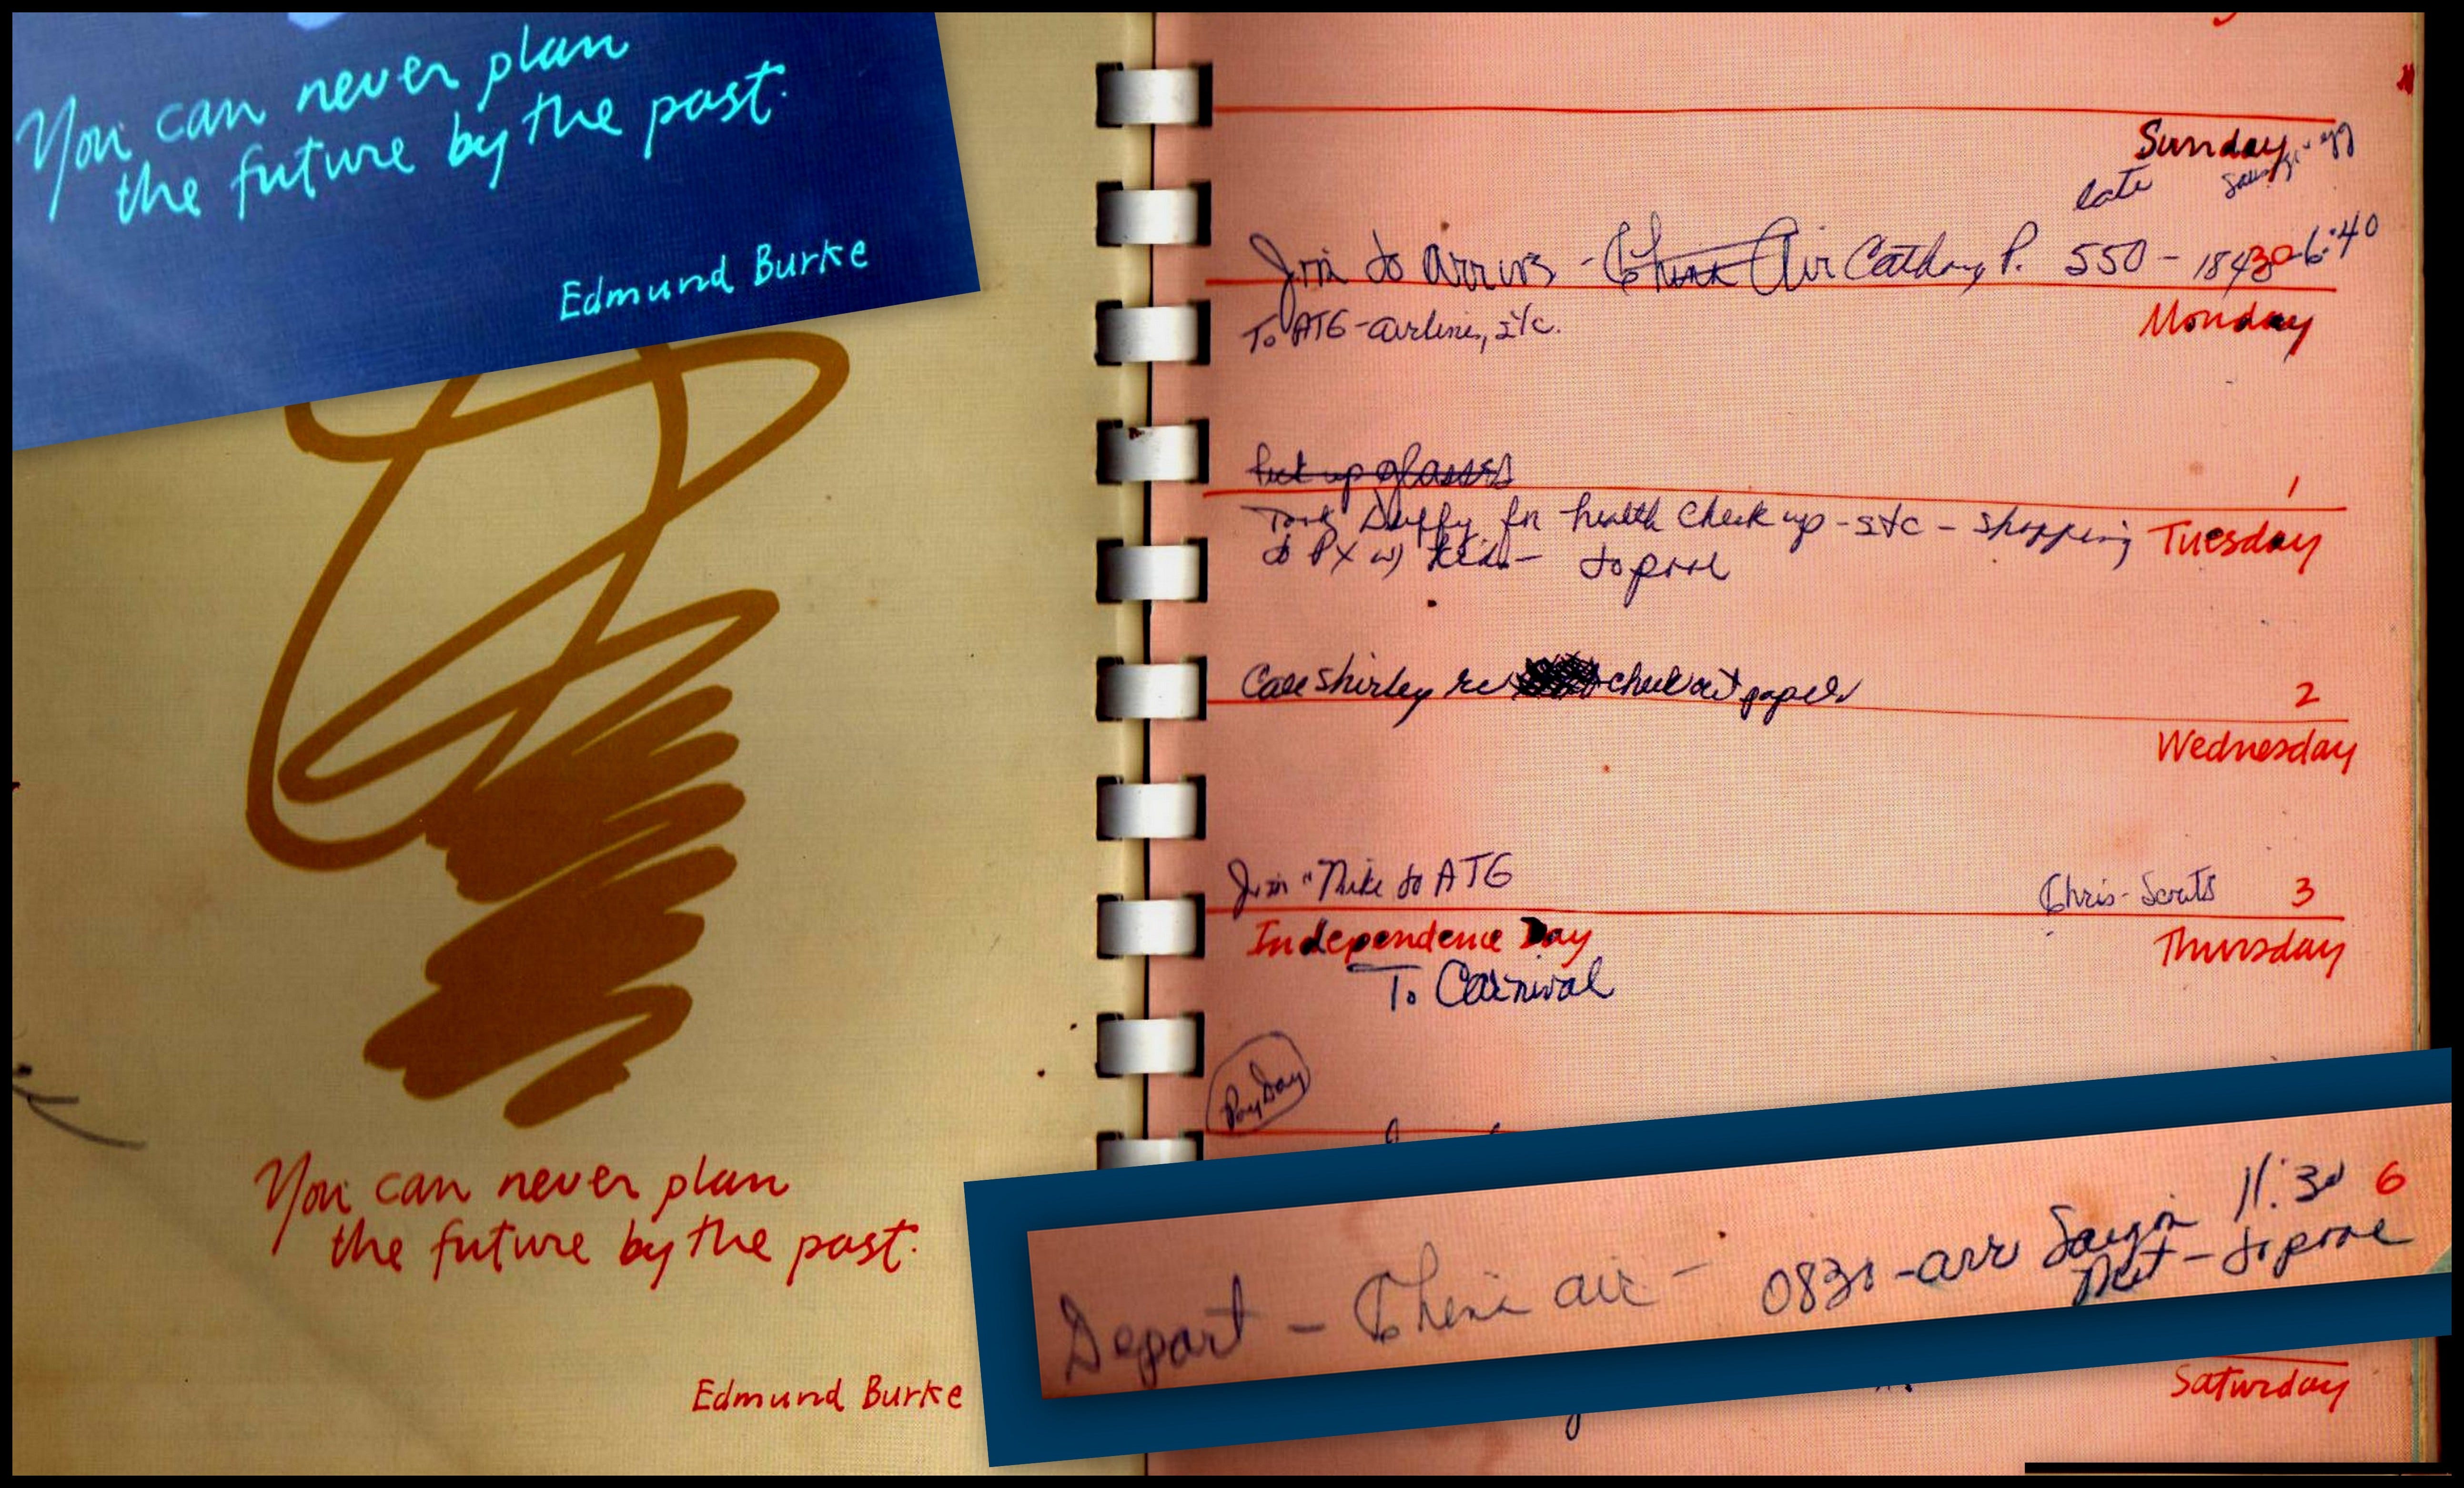 You can never plan
the future by the past.
Edmund Burke
You can never plan
the future by the past.
Edmund Burke
Sunday
late
Jim to arrive - China Air Cathay P. 550 - 1840 6:40
Monday
To ATG - airlines, etc.
Pick up glasses
1
Tuesday
Took Duffy for health check up - etc - shopping
to PX w/ kids - to pool
Call Shirley re check out papers
2
Wednesday
Jim & Mike to ATG
Chris - Scouts
3
Independence Day
Thursday
To Carnival
Pay Day
Depart - China air - 0830 - arr Saigon 11:30
6
to pool
Saturday